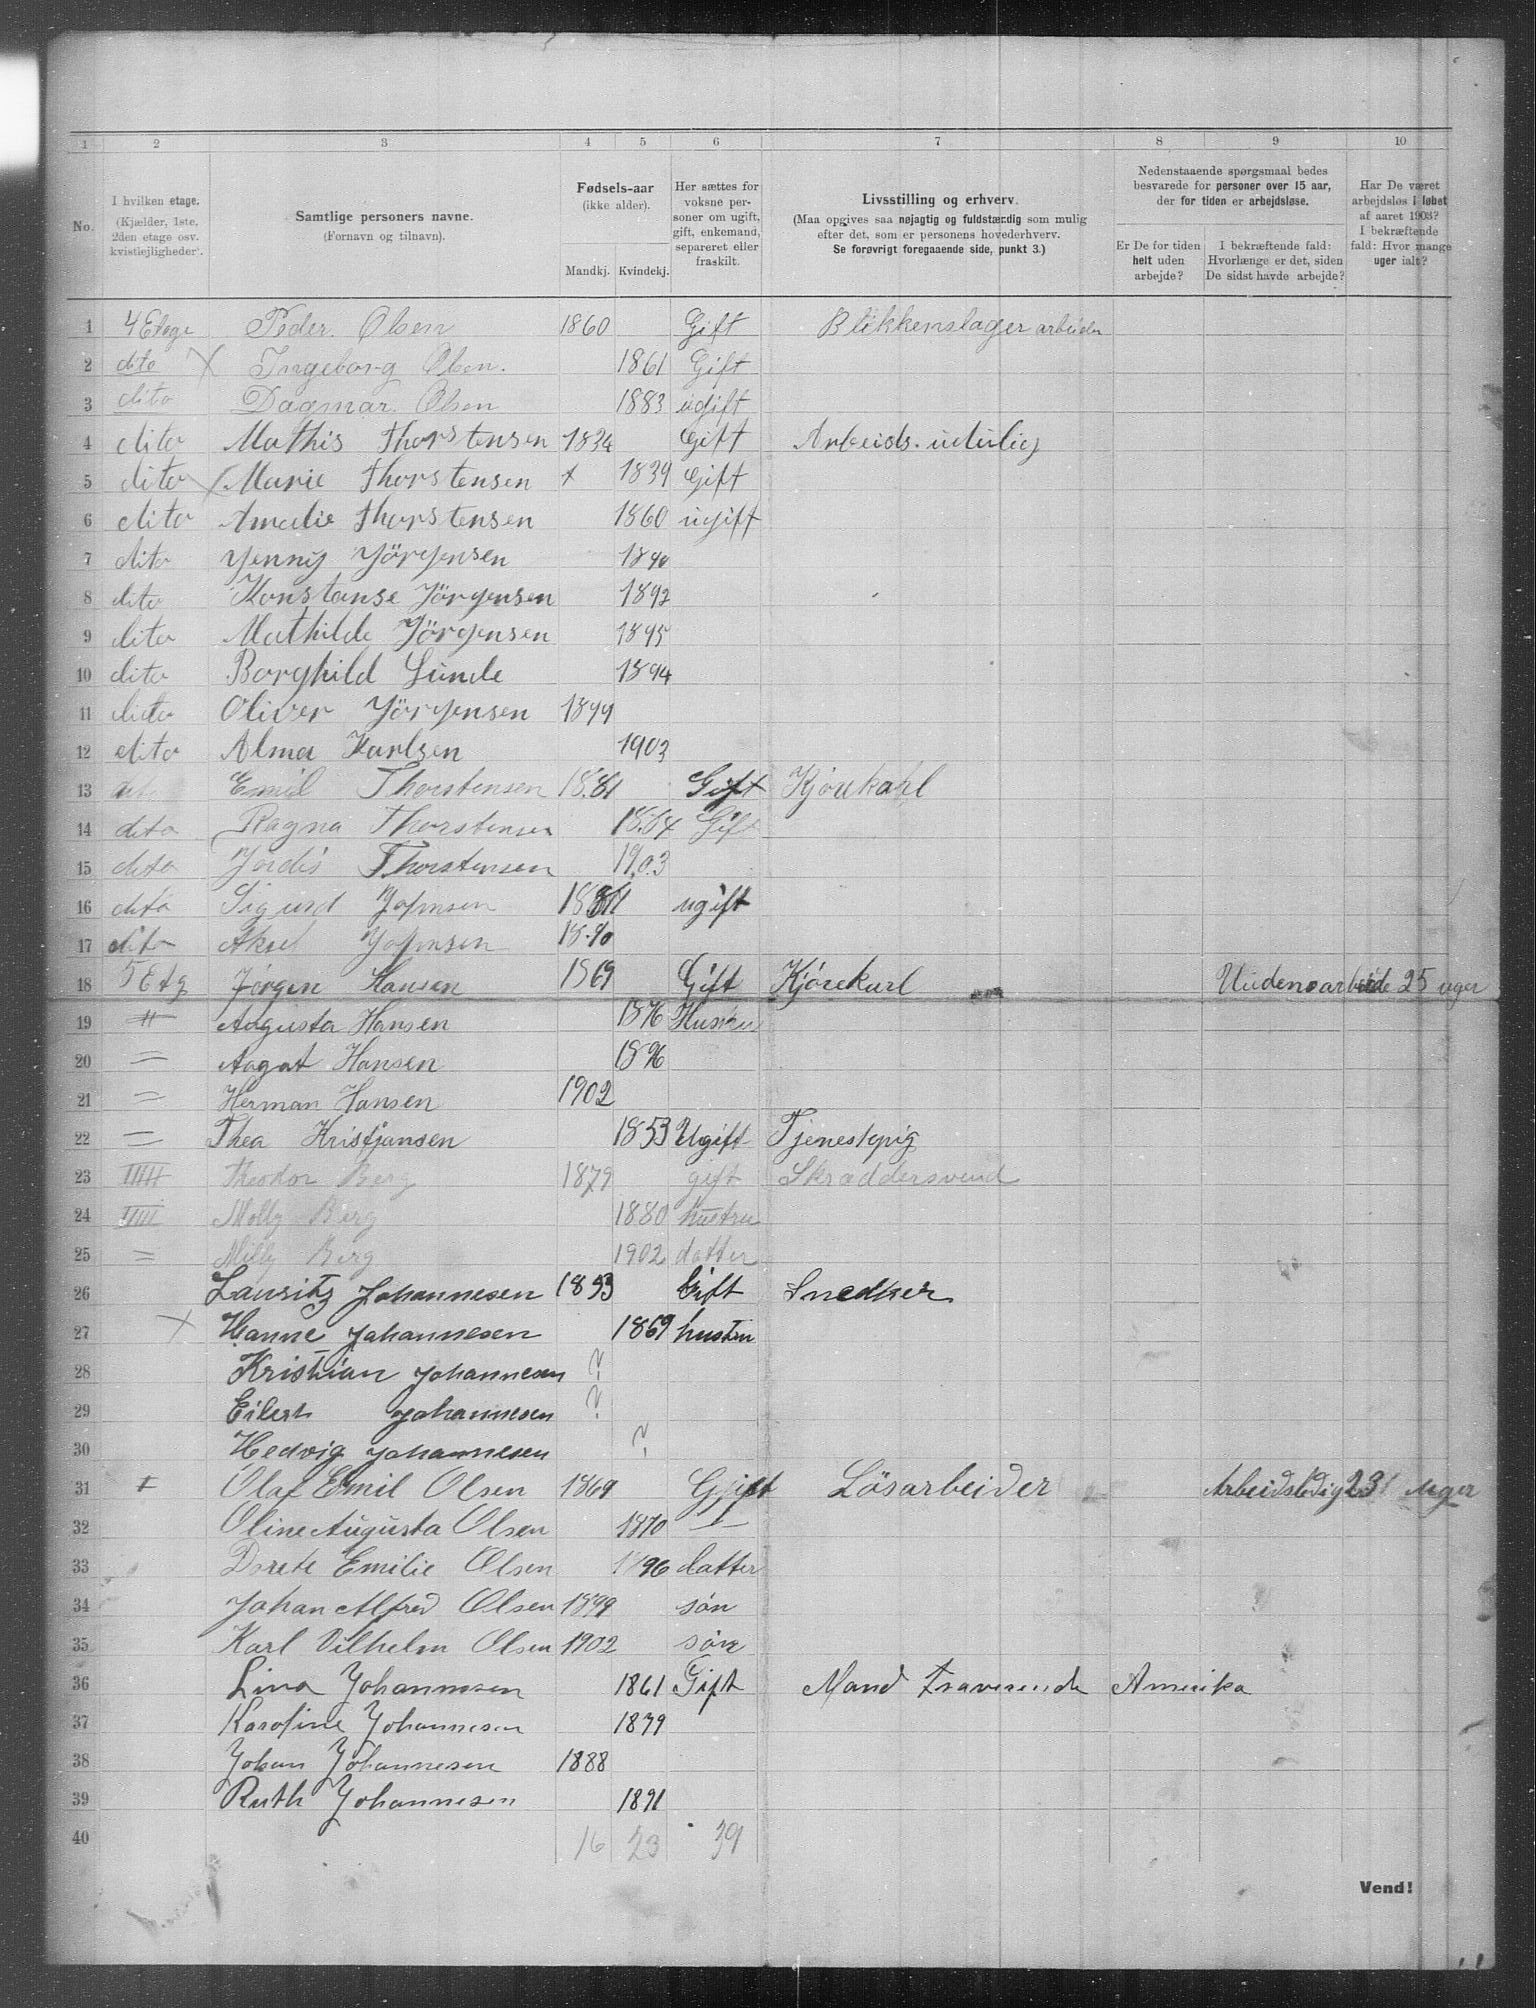 1 2 3 4 5 6 7 8 9 10
No.
I hvilken etage. (Kjælder, 1ste, 2den etage osv. kvistleiligheder).
Samtlige personers navne. (Fornavn og tilnavn).
Fødsels-aar (ikke alder). Mandkj. Kvindekj.
Her sættes for voksne personer om ugift, gift, enkemand, separeret eller fraskilt.
Livsstilling og erhverv. (Maa opgives saa nøjagtig og fuldstændig som mulig efter det, som er personens hovederhverv. Se forøvrigt foregaaende side, punkt 3.)
Nedenstaaende spørgsmaal bedes besvarede for personer over 15 aar, der for tiden er arbejdsløse.
Er De for tiden helt uden arbejde?
I bekræftende fald: Hvorlænge er det, siden De sidst havde arbejde?
Har De været arbejdsløs i løbet af aaret 1903? I bekræftende fald: Hvor mange uger ialt?
1 4 Etage Peder Olsen 1860 Gift Blikkenslager arbeider
2 dito X Ingeborg Olsen. 1861 Gift
3 dito Dagmar. Olsen 1883 ugift
4 dito Mathis Thorstensen 1834 Gift Arbeids.udulig
5 dito X Marie Thorstensen 1839 Gift
6 dito Amalie Thorstensen 1860 ugift
7 dito Yenny Jörgensen 1890
8 dito Konstanse Jörgensen 1892
9 dito Mathilde Jörgensen 1895
10 dito Borghild Lunde 1894
11 dito Oliver Jörgensen 1899
12 dito Alma Karlsen 1903
13 dito Emil Thorstensen 1881 Gift Kjörekarl
14 dito Ragna Thorstensen 1884 Gift
15 dito Jordis Thorstensen 1903
16 dito Sigurd Johnsen ugift
17 dito Aksel Johnsen 1890
18 5 Etg Jörgen Hansen 1869 Gift Kjörekarl Uudenarbeide 25 uger
19 " Augusta Hansen 1876 Hustru
20 = Aagot Hansen 1896
21 = Herman Hansen 1902
22 = Thea Kristjansen 1853 Ugift Tjenestepig
23 Theodor Berg 1879 gift Skræddersvend
24 Molly Berg 1880 hustru
25 = Milly Berg 1902 datter
26 Lauritz Johannesen 1853 Gift Snedker
27 X Hanne Johannesen 1869 hustru
28 Kristian Johannesen ?
29 Eilert Johannesen ?
30 Hedvig Johannesen ?
31 Olaf Emil Olsen 1869 Gift Lösarbeider Arbeidsledig 23 uger
32 Oline Augusta Olsen 1870 —"—
33 Dorete Emilie Olsen 1896 datter
34 Johan Alfred Olsen 1899 sön
35 Karl Vilhelm Olsen 1902 sön
36 Lina Johannesen 1861 Gift Mand fraverende Amerika
37 Karoline Johannesen 1879
38 Johan Johannesen 1888
39 Ruth Johannesen 1891
40 16 23 39
Vend!